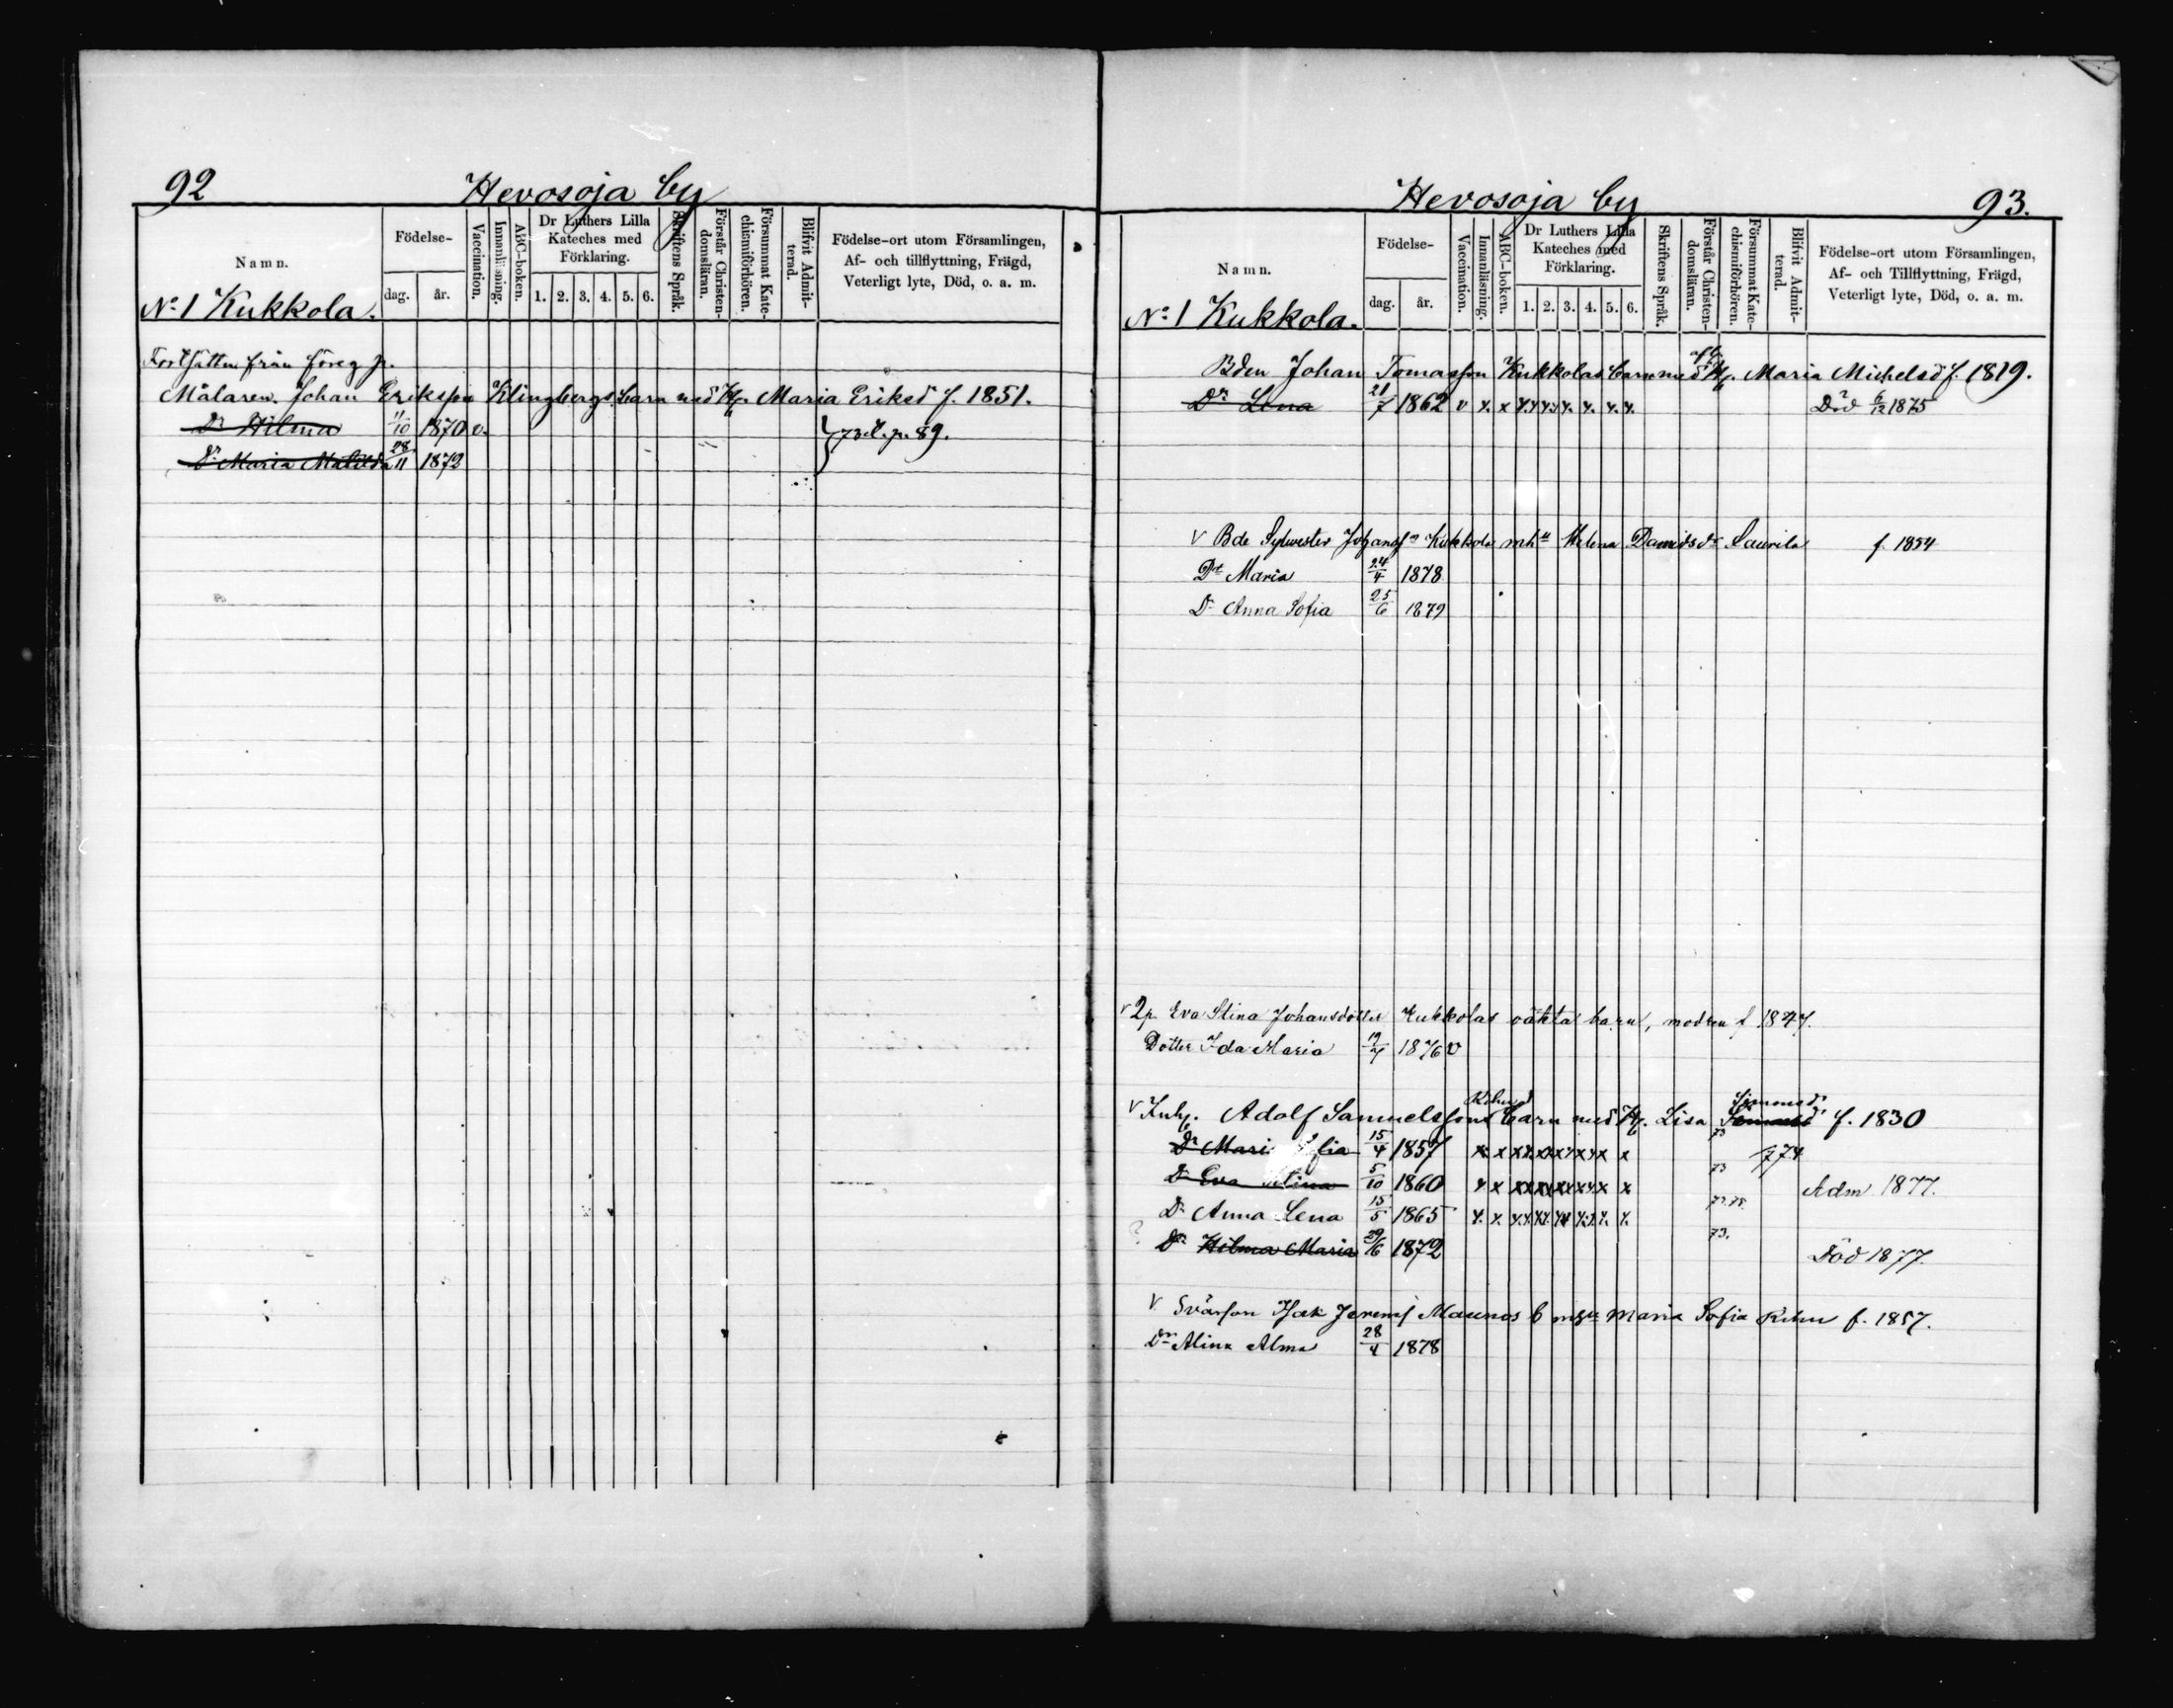 92
Hevosoja by
Namn.
Födelse-
dag.
år.
Vaccination.
Innanläsning.
ABC-boken.
Dr Luthers Lilla
Kateches med
Förklaring.
1. 2. 3. 4. 5. 6.
Skriftens Språk.
Förstår Christen-
domsläran.
Försummat Kate-
chismiförhören.
Blifvit Admit-
terad.
Födelse-ort utom Församlingen,
Af- och tillflyttning, Frägd,
Veterligt lyte, Död, o. a. m.
No 1 Kukkola.
Fortsättn från föreg p.
Målaren Johan Eriksson Klingbergs barn med H. Maria Eriksd f. 1851.
Dr Hilma 11/10 1870 v. p. 89.
Dr Maria Matilda 28/11 1872
Hevosoja by
93.
Namn.
Födelse-
dag.
år.
Vaccination.
Innanläsning.
ABC-boken.
Dr Luthers Lilla
Kateches med
Förklaring.
1. 2. 3. 4. 5. 6.
Skriftens Språk.
Förstår Christen-
domsläran.
Försummat Kate-
chismiförhören.
Blifvit Admit-
terad.
Födelse-ort utom Församlingen,
Af- och Tillflyttning, Frägd,
Veterligt lyte, Död, o. a. m.
No 1 Kukkola.
Bden Johan Tomasson Kukkolas barn med H. Maria Michelsd f. 1819.
Dr Lena 21/7 1862 v x x x x x x x x Död 6/12 1875
v Bde Sylvester Johansn Kukkola mhu Helena Davidsdr Laurila f. 1854
Dr Maria 24/4 1878
Dr Anna Sofia 25/6 1879
v 2p Eva Stina Johansdotter Kukkolas oäkta barn, modren f 1847.
Dotter Ida Maria 19/7 1876 v
v Inh. Adolf Samuelssons barn med H. Lisa Simonsd f. 1830
Dr Maria Sofia 15/4 1857 x x x x x x x x 73 774
Dr Eva Stina 5/10 1860 x x x x x x x x 73 Adm 1877.
Dr Anna Lena 15/5 1865 x x x x x x x x 73.75
Dr Hilma Maria 29/6 1872 73. Död 1877.
v Svärson Isak Jeremj Maunos b mhu Maria Sofia Rihu f. 1857.
Dr Alina Alma 28/4 1878